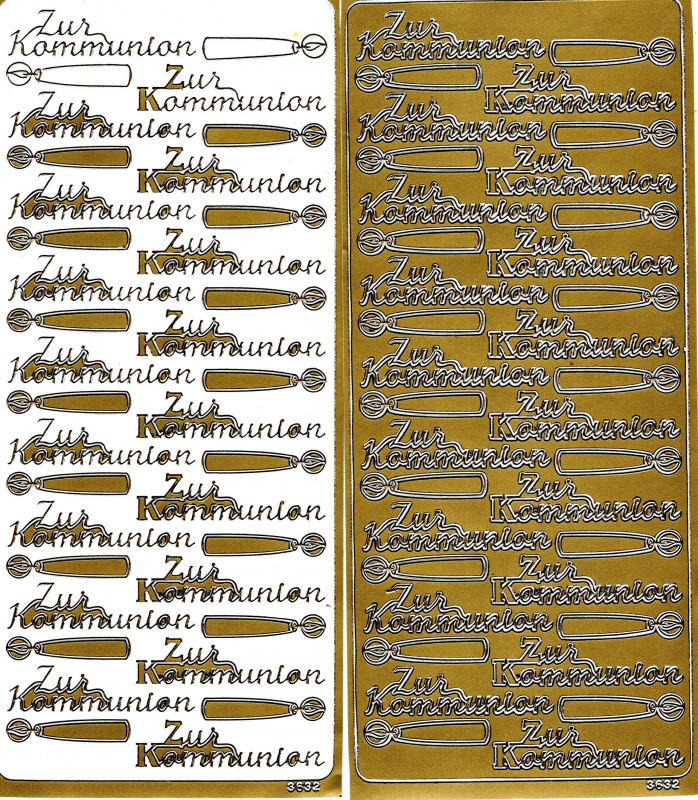 Zur
Kommunion
Zur
Kommunion
Zur
Kommunion
Zur
Kommunion
Zur
Kommunion
Zur
Kommunion
Zur
Kommunion
Zur
Kommunion
Zur
Kommunion
Zur
Kommunion
Zur
Kommunion
Zur
Kommunion
Zur
Kommunion
Zur
Kommunion
Zur
Kommunion
Zur
Kommunion
Zur
Kommunion
Zur
Kommunion
3632
Zur
Kommunion
Zur
Kommunion
Zur
Kommunion
Zur
Kommunion
Zur
Kommunion
Zur
Kommunion
Zur
Kommunion
Zur
Kommunion
Zur
Kommunion
Zur
Kommunion
Zur
Kommunion
Zur
Kommunion
Zur
Kommunion
Zur
Kommunion
Zur
Kommunion
Zur
Kommunion
Zur
Kommunion
Zur
Kommunion
3632